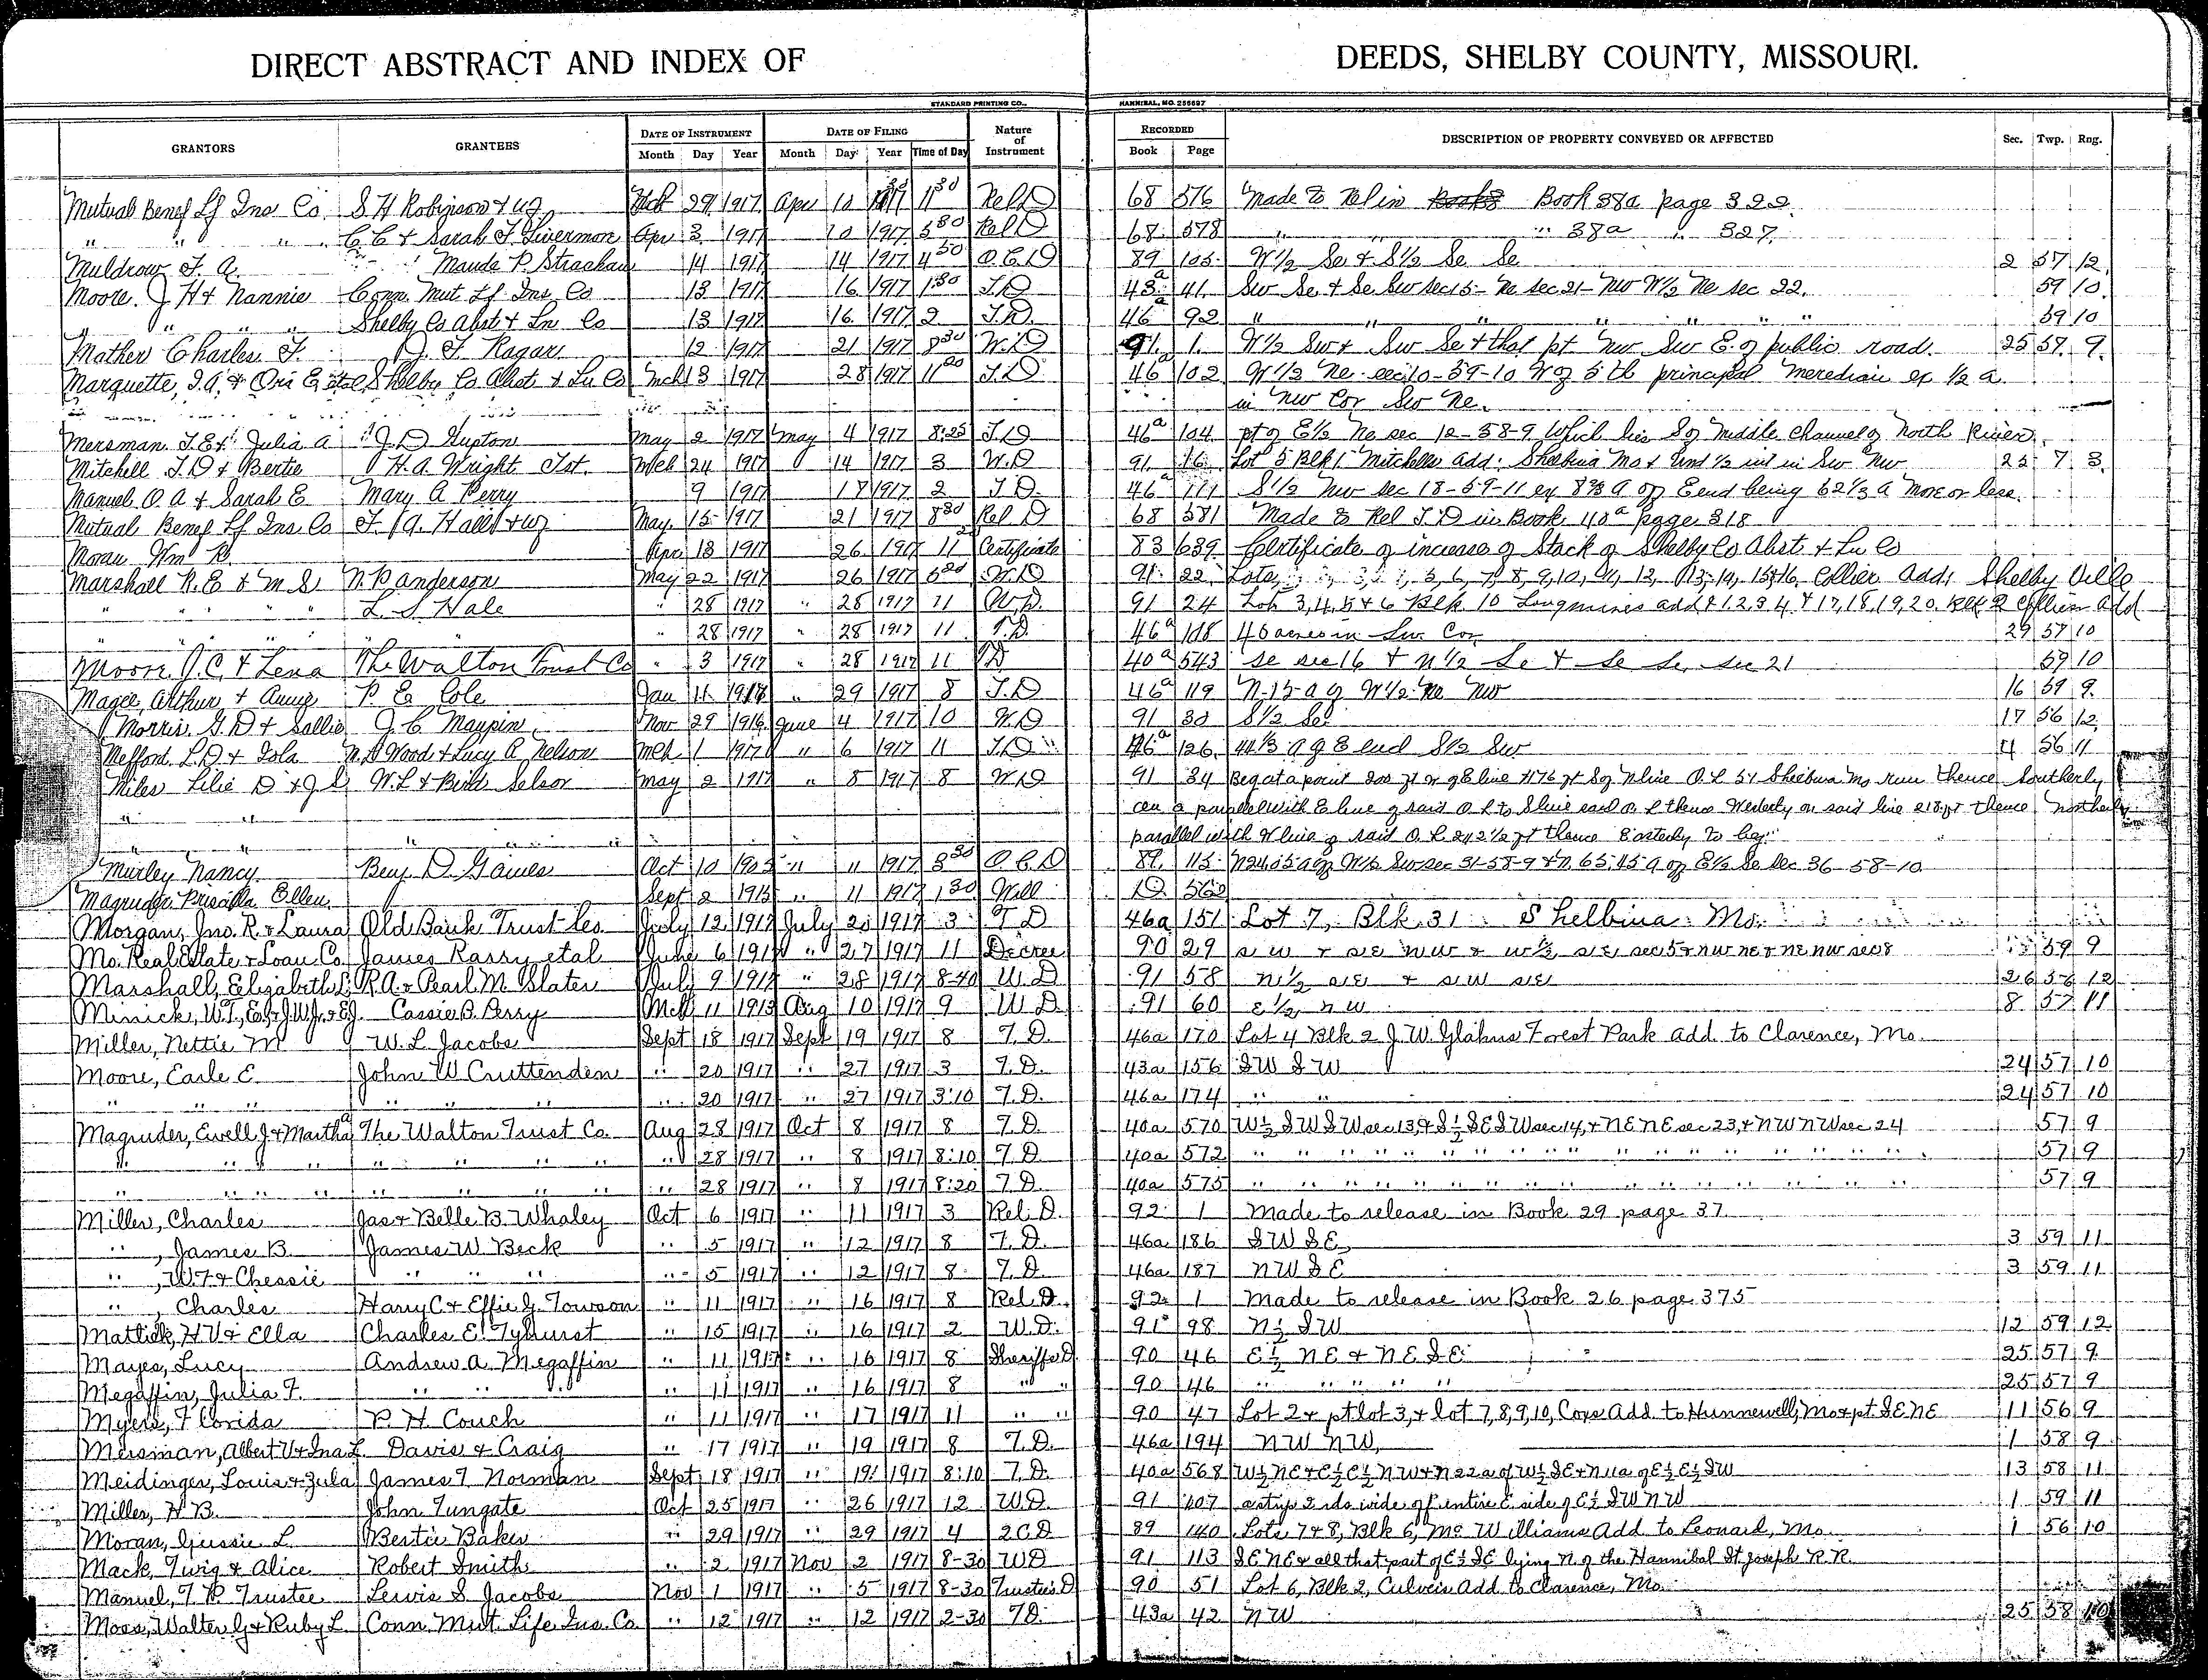 DIRECT ABSTRACT AND INDEX OF DEEDS, SHELBY COUNTY, MISSOURI.
STANDARD PRINTING CO., HANNIBAL, MO. 256697
GRANTORS GRANTEES DATE OF INSTRUMENT DATE OF FILING Nature of Instrument RECORDED DESCRIPTION OF PROPERTY CONVEYED OR AFFECTED Sec. Twp. Rng.
Month Day Year Month Day Year Time of Day Book Page
Mutual Benef Lf Ins Co. S H Robinson & wf 29 1917 Apr 10 1917 11 30 Rel D 68 576 Made to Rel in Book 38a page 322.
" " " C. C & Sarah F. Livermon Apr 3 1917 10 1917 5 30 Rel D 68 578 " " " 38a " 327
Muldrow F. A. Maude P. Strachan 14 1917 14 1917 4 50 Q.C.D 89 105 W 1/2 Se & S 1/2 Se Se 2 57 12
Moore J H & Nannie Conn. Mut Lf Ins Co 13 1917 16 1917 1 30 T.D 43a 41 Sw Se & Se Sw sec 15 - Ne sec 21 - Nw W 1/2 Ne sec 22. 59 10
" " " " Shelby Co Abst & Ln Co 13 1917 16 1917 2 T.D. 46a 92 " " " " " " " 59 10
Mather Charles F. D. F. Ragan 12 1917 21 1917 8 30 W.D 91 1 W 1/2 Sw & Sw Se & that pt Nw Sw E. of public road. 25 58 9
Marquette, I.A. & Ora E et al Shelby Co Abst & Ln Co Mch 13 1917 28 1917 11 20 T.D 46a 102 W 1/2 Ne sec 10-59-10 W of 5th principal meredian ex 1/2 a.
in NW Cor Sw Ne.
Mersman T.E & Julia A J. D Gupton May 2 1917 May 4 1917 8:25 T.D 46a 104 pt of E 1/2 Ne sec 12-58-9 Which lies S of middle channel of North River.
Mitchell J. D & Bertie H. A. Wright Tst. Mch 24 1917 14 1917 3 W.D 91 16 Lot 5 Blk 1 Mitchells add. Shelbina Mo & Und 1/2 int in Sw Nw
Manuel O. A & Sarah E Mary A Perry 9 1917 17 1917 2 T.D. 46a 111 S 1/2 Nw sec 18-59-11 ex a off E end being 62 1/3 a more or less.
Mutual Benef Lf Ins Co F. A. Hall & wf May 15 1917 21 1917 8 30 Rel D 68 581 Made to Rel T.D in Book 40a page 318
Moran Wm R. Apr 13 1917 26 1917 11 Certificate 83 639 Certificate of increase of Stock of Shelby Co Abst. & Ln Co
Marshall R. E & M S N. P. Anderson May 22 1917 26 1917 W.D 91 22 Lots 5, 6, 7, 8, 9, 10, 11, 12, 13, 14, 15 & 16 Collier Add: Shelby Ville
" " " " L. S Hale " 28 1917 " 28 1917 11 W.D. 91 24 Lots 3, 4, 5 & 6 Blk 10 Longmires add & 1.2.3.4. & 17, 18, 19, 20. Blk 2 Collier Add
" " " " " " " 28 1917 " 28 1917 11 T.D. 46a 118 40 acres in Sw Cor 29 57 10
Moore J. C. & Lena The Walton Trust Co " 3 1917 " 28 1917 11 TD 40a 543 Se sec 16 & N 1/2 Se & Se Se sec 21 59 10
Magee, Arthur & Annie P. E Cole Jan 11 1917 " 29 1917 8 T.D 46a 119 N. 15 a of W 1/2 Ne Nw 16 59 9
Morris. G. D & Sallie J. C. Maupin Nov 29 1916 June 4 1917 10 W.D 91 30 S 1/2 Se 17 56 12
Mefford. L. D & Iola N. D Wood & Lucy A. Nelson Mch 1 1917 " 6 1917 11 T.D 46a 126 44 1/3 a of E end S 1/2 Sw 4 56 11
Miles Lilie D & J S W. L & Birdi Selsor May 2 1917 " 8 1917 8 W.D 91 34 Beg at a point 200 ft W of E line & 176 ft S of N line O. L 51 Shelbina Mo run thence Southerly
on a parallel with E line of said O L to S line said O. L thence Westerly on said line 218 ft thence Northerly
parallel with W line of said O. L 242 1/2 ft thence Easterly to beg.
Murley Nancy Benj. D. Gaines Oct 10 1905 " 11 1917 8 30 Q.C.D 89 115 N 24.05 a of W 1/2 Sw sec 31-58-9 & N. 65.45 a of E 1/2 Se Sec 36-58-10
Magruder Prisailla Ellen. Sept 2 1915 " 11 1917 1 30 Will D 562
Morgan, Jno. R. & Laura Old Bank Trust Co. July 12 1917 July 20 1917 3 T D 46a 151 Lot 7, Blk 31 Shelbina Mo.
Mo. Real Estate & Loan Co. James Rasry et al June 6 1917 " 27 1917 11 Decree 90 29 SW & SE NW & W 1/2 SE, sec 5 & NW NE & NE NW sec 8 59 9
Marshall, Elizabeth L. R. A. & Pearl M. Slater July 9 1917 " 28 1917 8-40 W.D 91 58 N 1/2 SE & SW SE 26 56 12
Minick, W.T., E.J. & J.W. Jr. & E.J. Cassie B. Perry Mch 11 1913 Aug 10 1917 9 W D. 91 60 E 1/2 NW 8 57 11
Miller, Nettie M W. L. Jacobs Sept 18 1917 Sept 19 1917 8 T. D. 46a 170 Lot 4 Blk 2 J. W. Glahns Forest Park Add to Clarence, Mo.
Moore, Earle E. John W Cruttenden " 20 1917 " 27 1917 3 T. D. 43a 156 SW SW 24 57 10
" " " " " " " 20 1917 " 27 1917 3:10 T. D. 46a 174 " " 24 57 10
Magruder, Ewell J & Martha A The Walton Trust Co. Aug 28 1917 Oct 8 1917 8 T. D. 40a 570 W 1/2 SW SW sec 13, & S 1/2 SE SW sec 14, & NE NE sec 23, & NW NW sec 24 57 9
" " " " " " " " " 28 1917 " 8 1917 8:10 T. D. 40a 572 " " " " " " " " " " " " " " 57 9
" " " " " " " " " 28 1917 " 8 1917 8:20 T. D. 40a 575 " " " " " " " " " " " " " " 57 9
Miller, Charles Jas & Belle B. Whaley Oct 6 1917 " 11 1917 3 Rel. D. 92 1 Made to release in Book 29 page 37
" , James B. James W. Beck " 5 1917 " 12 1917 8 T. D. 46a 186 SW SE, 3 59 11
" , W.T. & Chessie " " " " 5 1917 " 12 1917 8 T. D. 46a 187 NW SE 3 59 11
" , Charles Harry C & Effie J. Towson " 11 1917 " 16 1917 8 Rel. D. 92 1 Made to release in Book 26 page 375
Mattick, H V & Ella Charles E. Tyhurst " 15 1917 " 16 1917 2 W.D. 91 98 N 1/2 SW 12 59 12
Mayes, Lucy Andrew A. Megaffin " 11 1917 " 16 1917 8 Sheriffs D. 90 46 E 1/2 NE & NE SE 25 57 9
Megaffin, Julia F. " " " " 11 1917 " 16 1917 8 " " 90 46 " " " " " 25 57 9
Myers, Florida P. H Couch " 11 1917 " 17 1917 11 " " 90 47 Lot 2 & pt lot 3, & lot 7, 8, 9, 10, Coxs Add to Hunnewell, Mo & pt. SE NE 11 56 9
Mersman, Albert V & Ina L. Davis & Craig " 17 1917 " 19 1917 8 T. D. 46a 194 NW NW, 1 58 9
Meidinger, Louis & Zula James T Norman Sept 18 1917 " 19 1917 8:10 T. D. 40a 568 W 1/2 NE & E 1/2 E 1/2 NW & N 22 a of W 1/2 SE & N 11 a of E 1/2 E 1/2 SW 13 58 11
Miller, H B. John Tungate Oct 25 1917 " 26 1917 12 W.D 91 107 a strip 2 rds wide off entire E. side of E 1/2 SW NW 1 59 11
Moran, Gussie L. Bertie Baker " 29 1917 " 29 1917 4 2 C D 89 140 Lots 7 & 8, Blk 6, Mc Williams Add to Leonard, Mo. 1 56 10
Mack, Twig & Alice Robert Smith " 2 1917 Nov 2 1917 8-30 WD 91 113 SE NE & all that part of E 1/2 SE lying N. of the Hannibal St Joseph R.R.
Manuel, T P. Trustee Lewis S Jacobs Nov 1 1917 " 5 1917 8-30 Trustees D 90 51 Lot 6, Blk 2, Culvers Add to Clarence, Mo.
Moss, Walter G & Ruby L Conn. Mut. Life Ins. Co. " 12 1917 " 12 1917 2-30 TD. 43a 42 NW 25 58 10